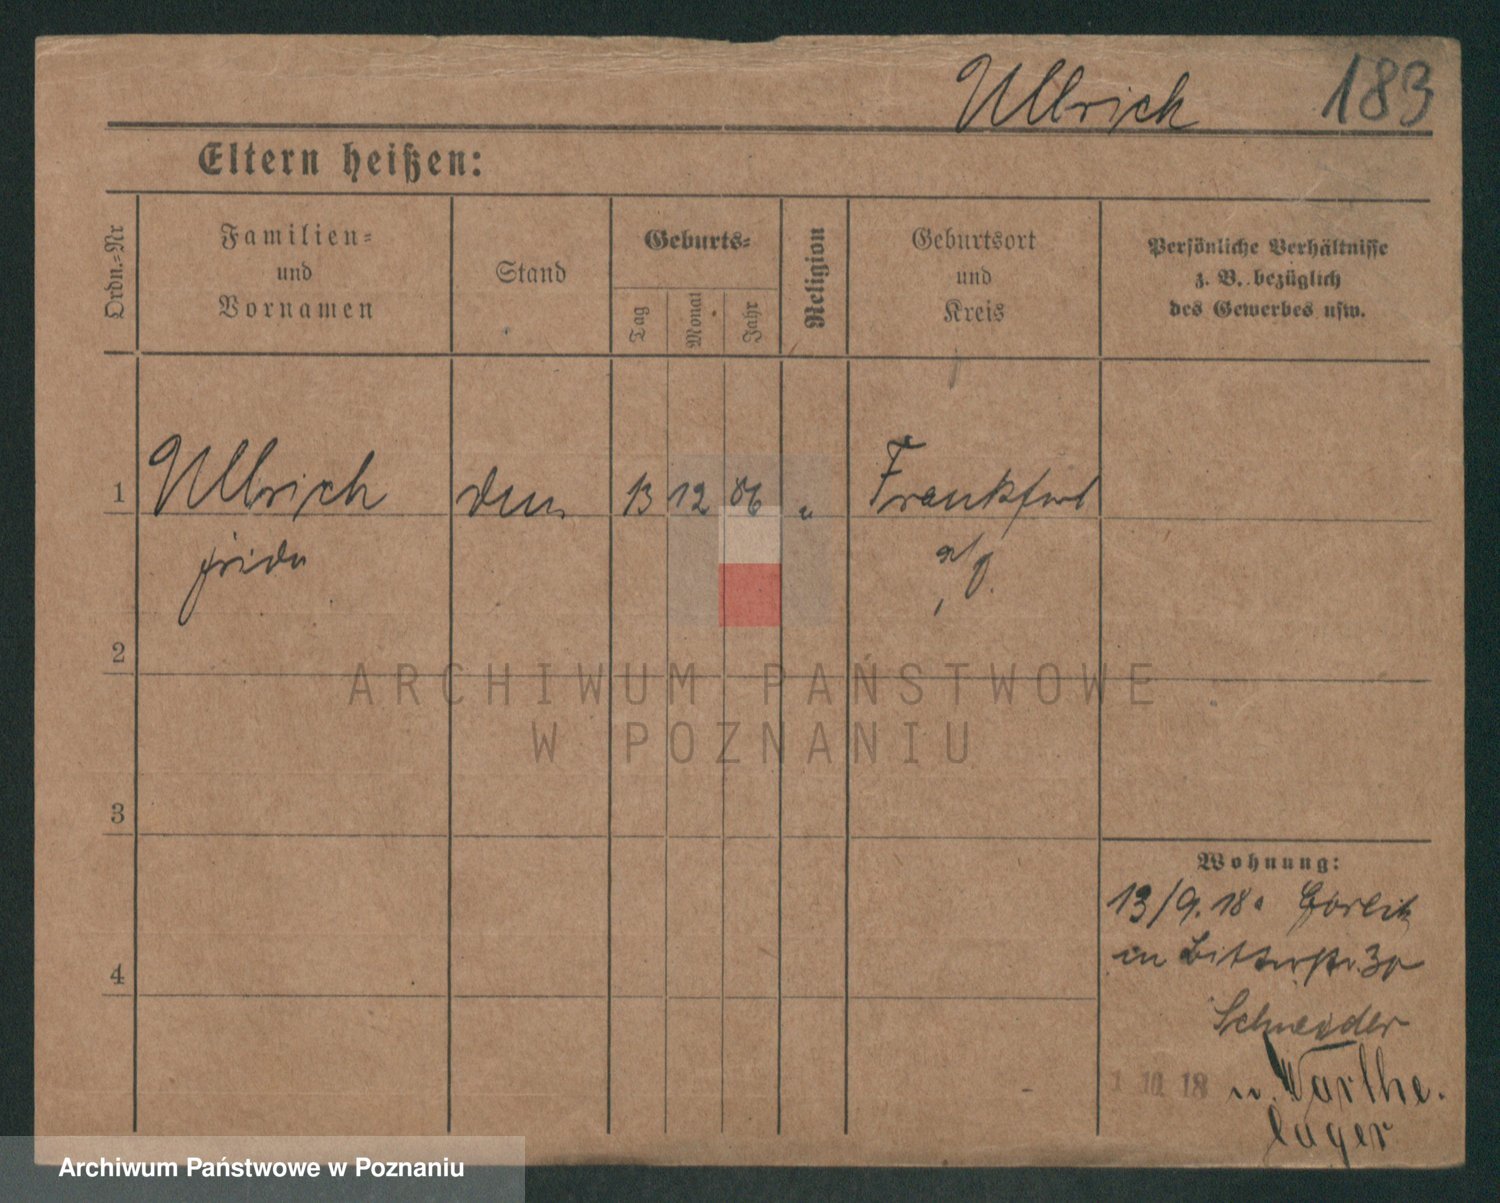 Ullrich 183
Eltern heißen:
Ordn.-Nr
Familien-
und
Vornamen
Stand
Geburts-
Tag
Monat
Jahr
Religion
Geburtsort
und
Kreis
Persönliche Verhältnisse
z. B. bezüglich
des Gewerbes usw.
1 Ullrich 13 12 06 Frankfurt
Frida a/O.
2
3
4
ARCHIWUM PAŃSTWOWE
W POZNANIU
Wohnung:
13/9.18. Görlitz
30
Schneider
1 10 18 n. Warthe-
lager
Archiwum Państwowe w Poznaniu